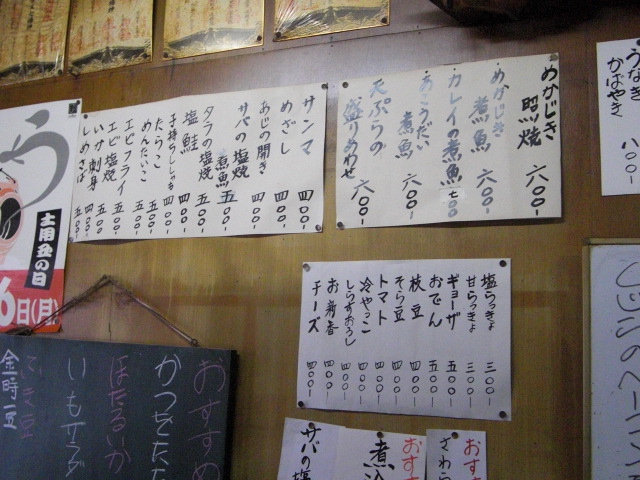 うなぎ
かばやき 八〇〇-
めかじき 照焼 六〇〇-
めかじき 煮魚 六〇〇-
カレイの煮魚 七〇〇
あこうだい 煮魚 六〇〇-
天ぷらの盛りあわせ 六〇〇-
サンマ 四〇〇-
めざし 四〇〇-
あじの開き 四〇〇-
サバの塩焼 煮魚 五〇〇-
タラの塩焼 五〇〇-
塩鮭 四〇〇-
子持ちししゃも 四〇〇-
たらこ 四〇〇-
めんたいこ 五〇〇-
エビフライ 五〇〇-
エビ塩焼 五〇〇-
いか刺身 四〇〇-
しめさば 五〇〇-
う
土用丑の日
6日(月)
塩らっきょ 三〇〇
甘らっきょ 三〇〇-
ギョーザ 五〇〇-
おでん 五〇〇-
枝豆 四〇〇-
そら豆 四〇〇-
トマト 四〇〇-
冷やっこ 四〇〇-
しらすおろし 四〇〇-
お新香 四〇〇-
チーズ 四〇〇-
おすすめ
かつおたた
ほたるいか
いもサラダ
金時豆
おす
さわら
おす
煮込
サバの塩